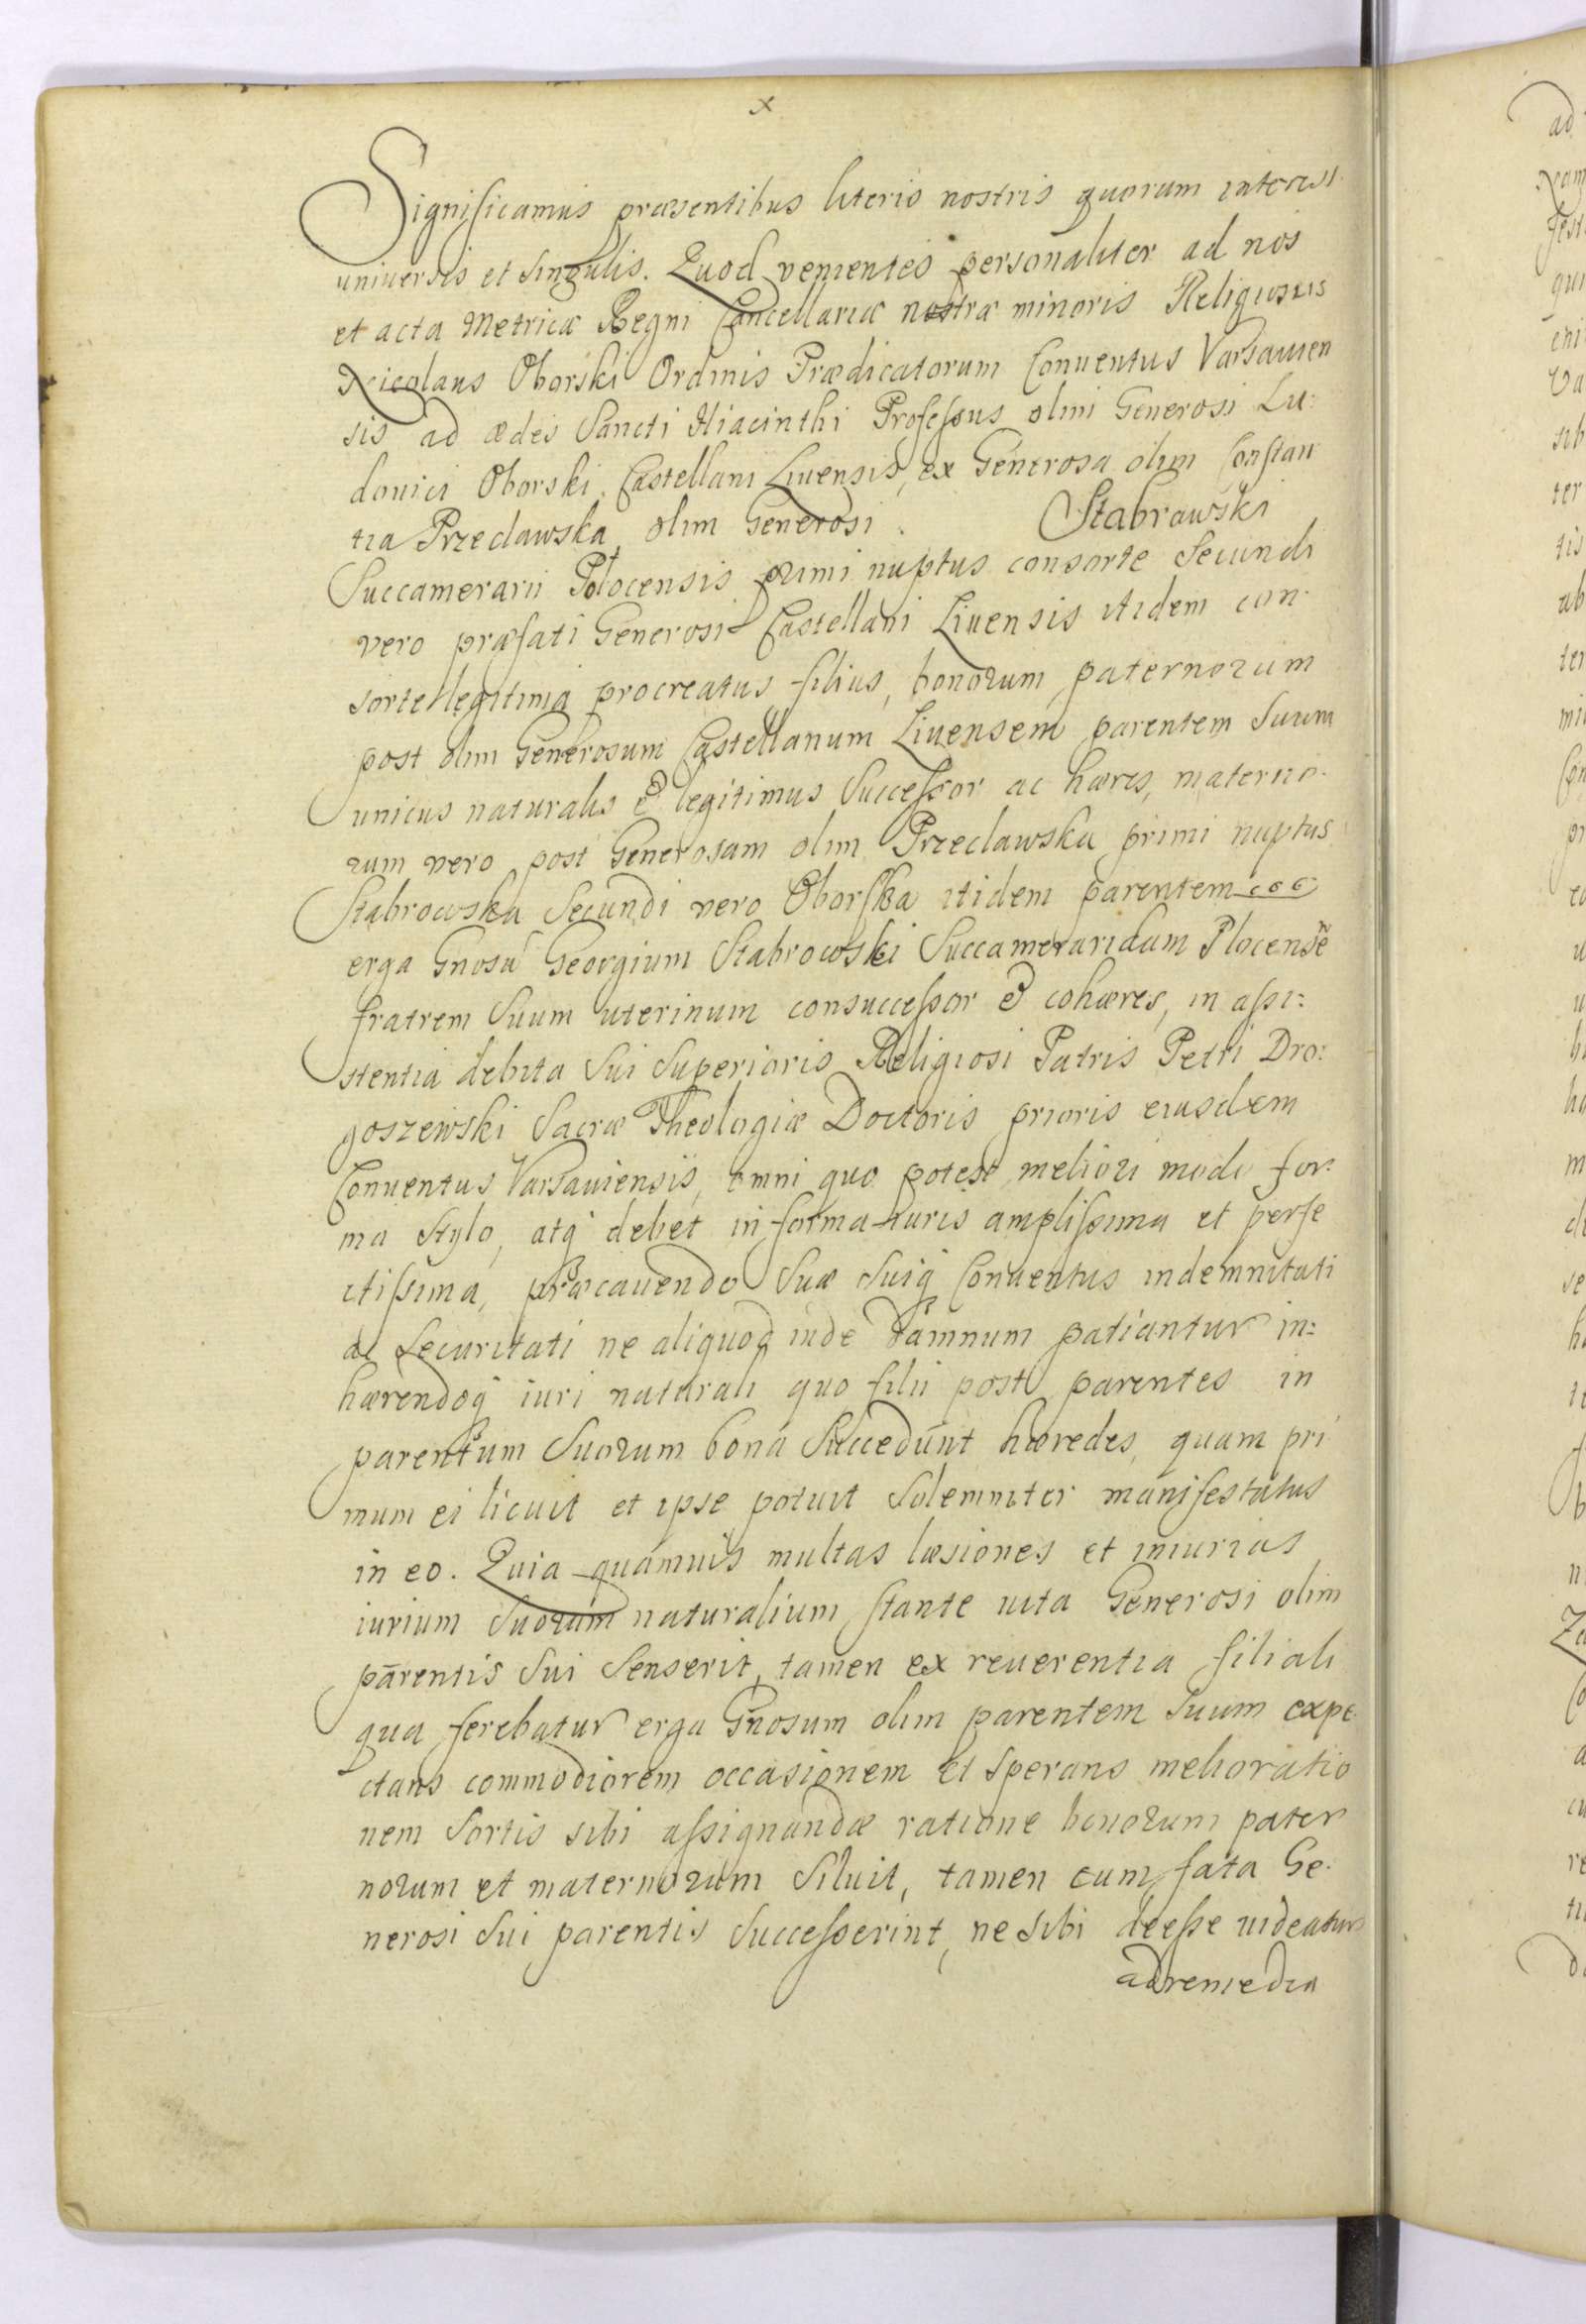 x
Significamus præsentibus literis nostris quorum interest
universis et singulis. Quod venientes personaliter ad nos
et acta Metricæ Regni Cancellariæ nostræ minoris Religiosus
Nicolaus Oborski Ordinis Prædicatorum Conventus Varsavien
sis ad ædes Sancti Hiacinthi Professus olim Generosi Lu:
dovici Oborski Castellani Livensis, ex Generosa olim Constan
tia Przeclawska olim Generosi Stabrawski
Succamerarii Plocensis primi nuptus consorte Secundi
vero præfati Generosi Castellani Livensis itidem con:
sorte legitima procreatus filius, bonorum paternorum
post olim Generosum Castellanum Livensem parentem Suum
unicus naturalis & legitimus Successor ac hæres, materno:
rum vero post Generosam olim Przeclawska primi nuptus
Stabrowska Secundi vero Oborska itidem parentem
erga Gnosu Georgium Stabrowski Succameraridam Plocensē
fratrem Suum uterinum consuccessor & cohæres, in assi:
stentia debita Sui Superioris Religiosi Patris Petri Dro:
goszewski Sacræ Theologiæ Doctoris prioris eiusdem
Conventus Varsaviensis, omni quo potest meliori modo for:
ma Stylo, atq debet in forma iuris amplissima et perfe
ctissima, præcavendo Suæ Suiq Conventus indemnitati
ac Securitati ne aliquod inde damnum patiantur in:
hærendoq iuri naturali quo filii post parentes in
parentum Suorum bona Succedunt hæredes, quam pri
mum ei licuit et ipse potuit Solemniter manifestatus
in eo. Quia quamvis multas læsiones et iniurias
iurium Suorum naturalium stante vita Generosi olim
parentis Sui Senserit, tamen ex reverentia filiali
qua ferebatur erga Gnosum olim parentem Suum expe
ctans commodiorem occasionem et Sperans melioratio
nem Sortis sibi assignandæ ratione bonorum pater
norum et maternorum Siluit, tamen cum fata Ge:
nerosi Sui parentis Successerint, ne Sibi deesse videatur
ad remedia